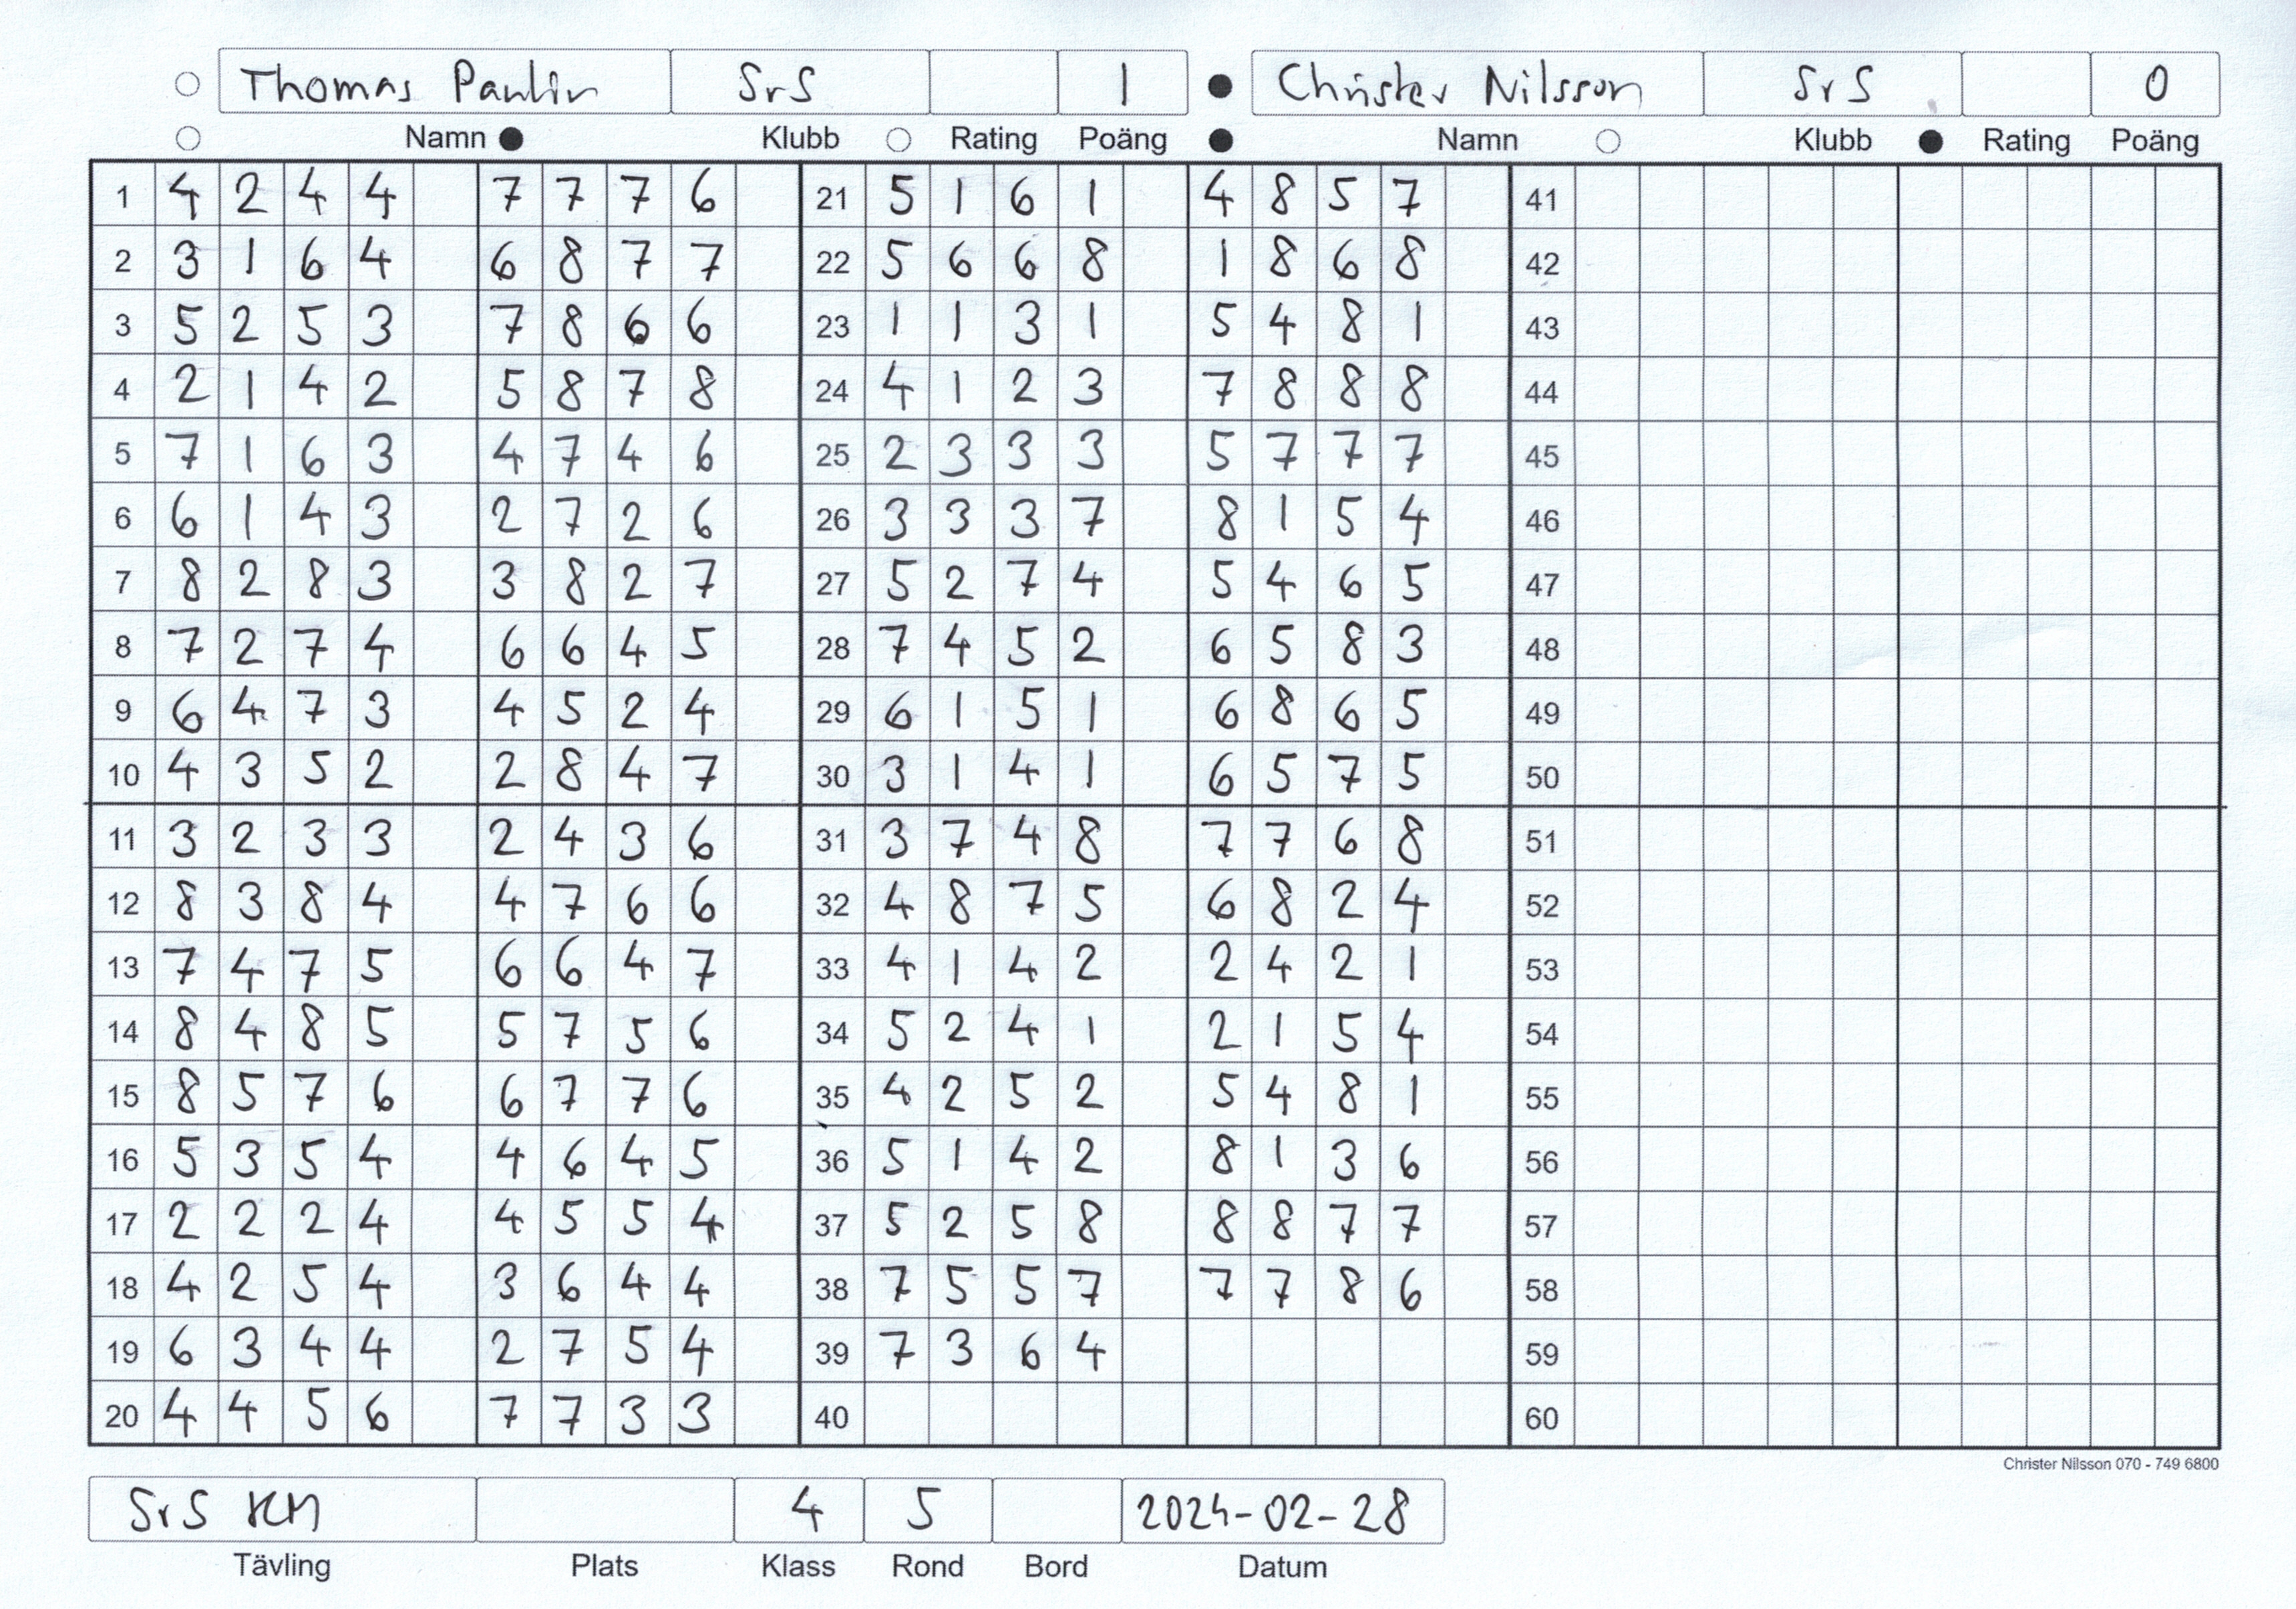 Thomas Paulin SrS 1 Christer Nilsson SrS 0
Namn Klubb Rating Poäng Namn Klubb Rating Poäng
1 4 2 4 4 7 7 7 6 21 5 1 6 1 4 8 5 7 41
2 3 1 6 4 6 8 7 7 22 5 6 6 8 1 8 6 8 42
3 5 2 5 3 7 8 6 6 23 1 1 3 1 5 4 8 1 43
4 2 1 4 2 5 8 7 8 24 4 1 2 3 7 8 8 8 44
5 7 1 6 3 4 7 4 6 25 2 3 3 3 5 7 7 7 45
6 6 1 4 3 2 7 2 6 26 3 3 3 7 8 1 5 4 46
7 8 2 8 3 3 8 2 7 27 5 2 7 4 5 4 6 5 47
8 7 2 7 4 6 6 4 5 28 7 4 5 2 6 5 8 3 48
9 6 4 7 3 4 5 2 4 29 6 1 5 1 6 8 6 5 49
10 4 3 5 2 2 8 4 7 30 3 1 4 1 6 5 7 5 50
11 3 2 3 3 2 4 3 6 31 3 7 4 8 7 7 6 8 51
12 8 3 8 4 4 7 6 6 32 4 8 7 5 6 8 2 4 52
13 7 4 7 5 6 6 4 7 33 4 1 4 2 2 4 2 1 53
14 8 4 8 5 5 7 5 6 34 5 2 4 1 2 1 5 4 54
15 8 5 7 6 6 7 7 6 35 4 2 5 2 5 4 8 1 55
16 5 3 5 4 4 6 4 5 36 5 1 4 2 8 1 3 6 56
17 2 2 2 4 4 5 5 4 37 5 2 5 8 8 8 7 7 57
18 4 2 5 4 3 6 4 4 38 7 5 5 7 7 7 8 6 58
19 6 3 4 4 2 7 5 4 39 7 3 6 4 59
20 4 4 5 6 7 7 3 3 40 60
Christer Nilsson 070 - 749 6800
SrS KM 4 5 2024-02-28
Tävling Plats Klass Rond Bord Datum